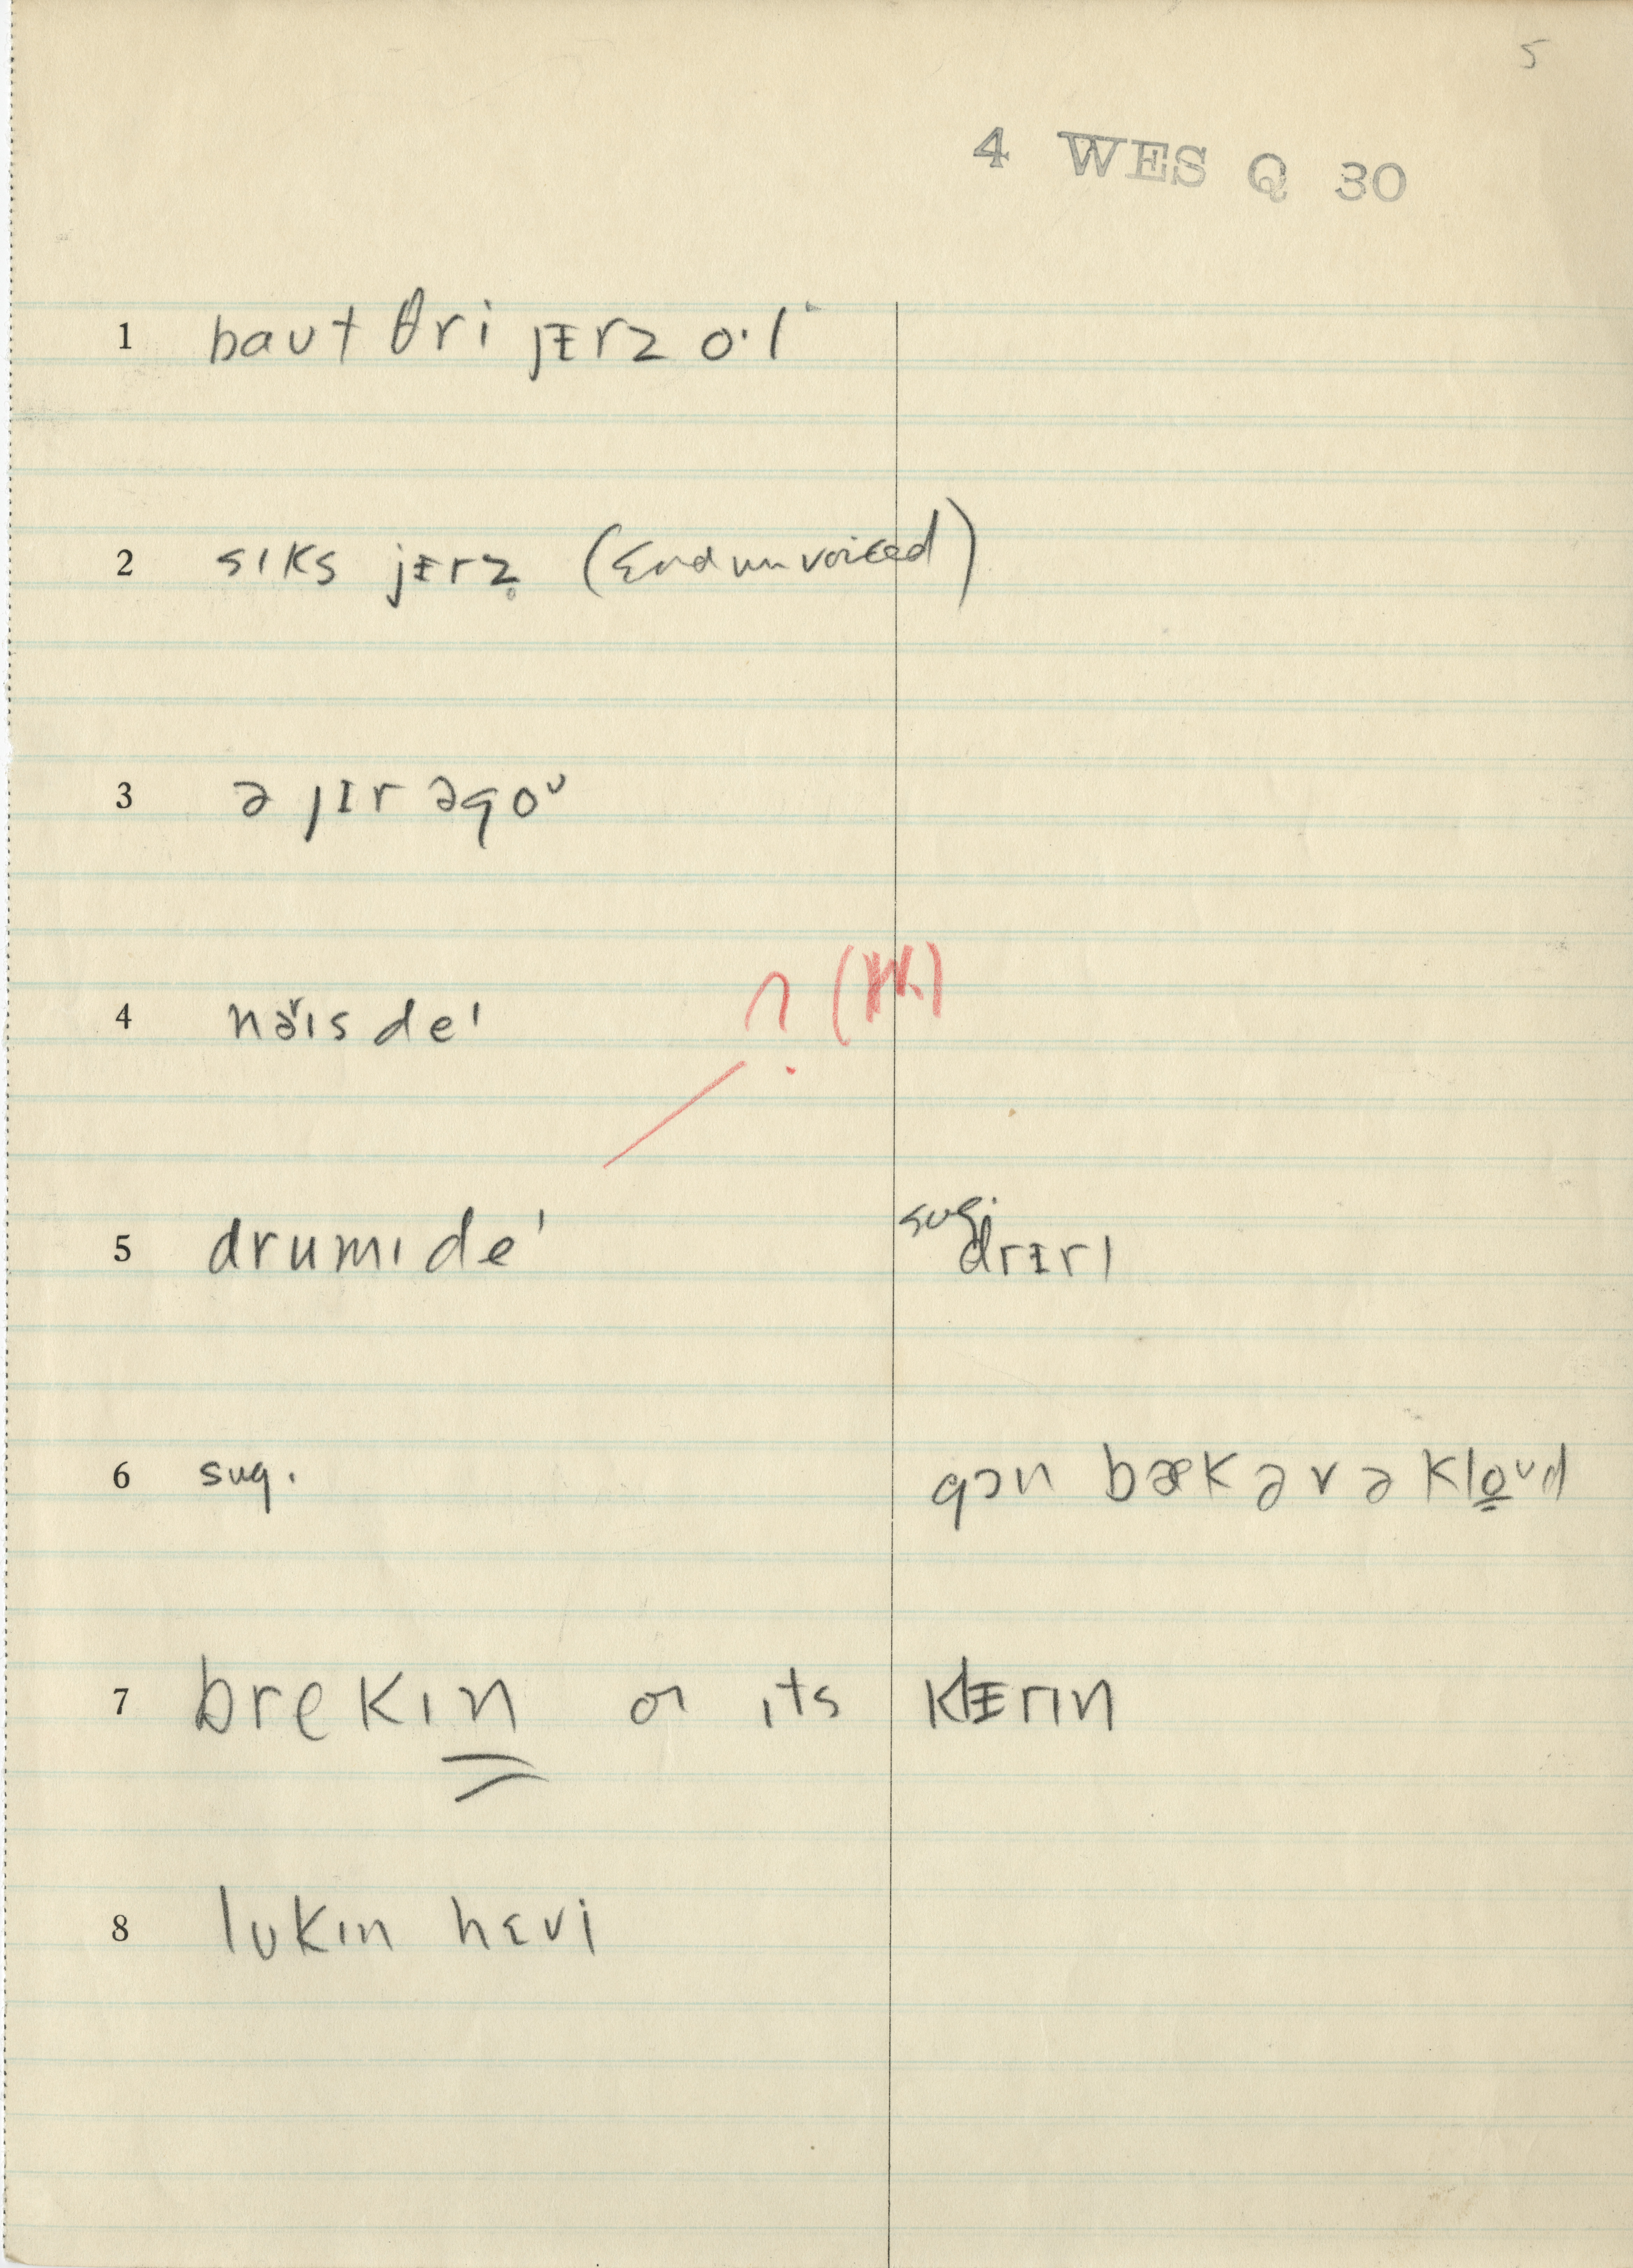 5
4 WES Q 30
1 baut θri jᵻrz o·l
2 sɪks jᵻrz̥ (End unvoiced)
3 ə jɪr əgoᵘ
? (HK)
4 nə̌ɪs deᶦ
5 drumɪ deᶦ sug. drᵻrɪ
6 sug. gɔn bækərə kloᵘd
7 brekɪn or ɪts klᵻrɪn
8 lʊkɪn hɛvi